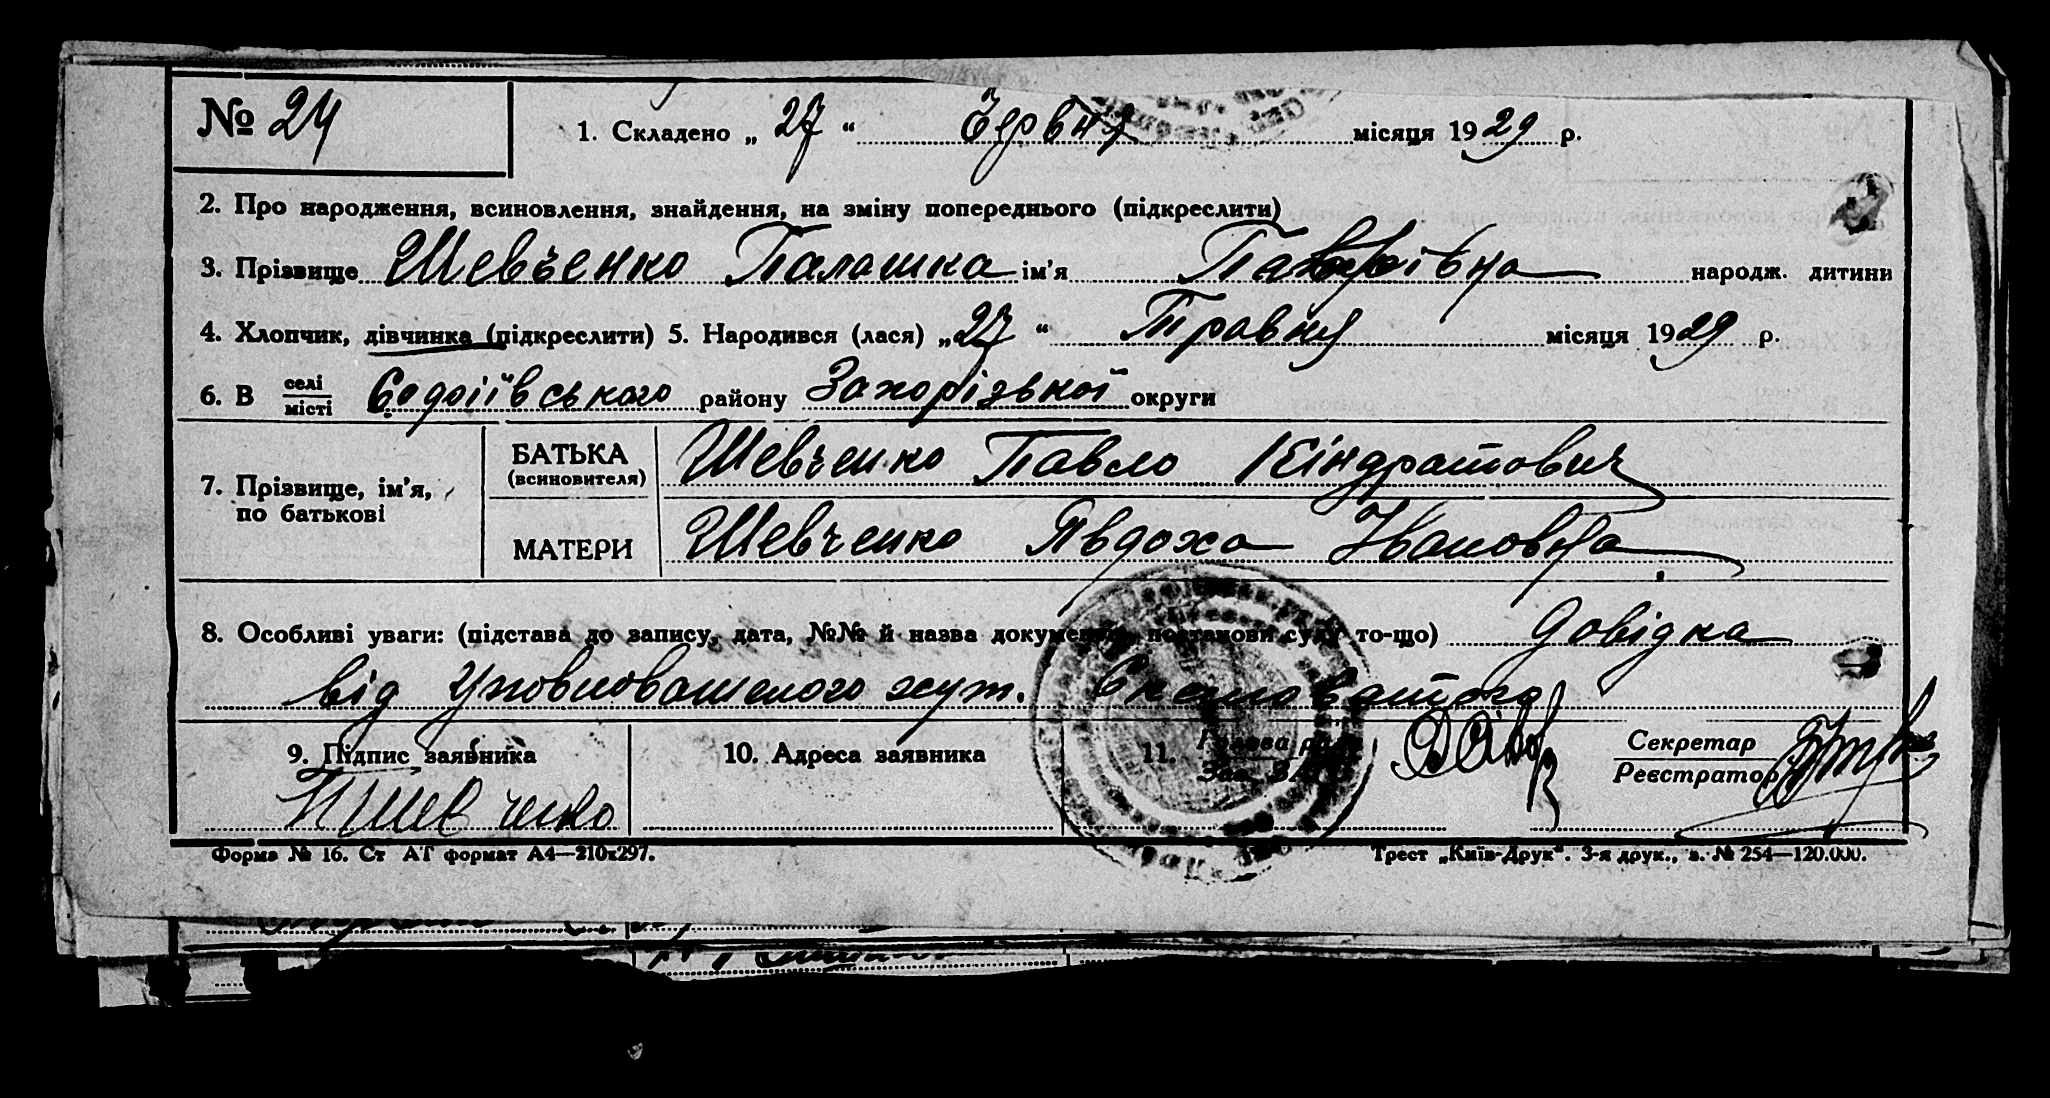 № 24
1. Складено „ 27 “ Червня місяця 1929 р.
2. Про народження, всиновлення, знайдення, на зміну попереднього (підкреслити)
3. Прізвище Шевченко Палашка ім'я Павлівна народж. дитини
4. Хлопчик, дівчинка (підкреслити) 5. Народився (лася) „27“ Травня місяця 1929 р.
6. В селі місті району Запорізької округи
7. Прізвище, ім'я, по батькові
БАТЬКА (всиновителя) Шевченко Павло Кіндратович
МАТЕРИ Шевченко Явдоха Івановна
8. Особливі уваги: (підстава до запису, дата, №№ й назва документа, постанови суду то-що) Довідка
від Уповноваженого хут.
9. Підпис заявника
10. Адреса заявника
11. Голова
Секретар
Реєстратор
П Шевченко
Форма № 16. Ст АТ формат А4—210х297.
Трест „Київ-Друк“. 3-я друк., з. № 254—120.000.